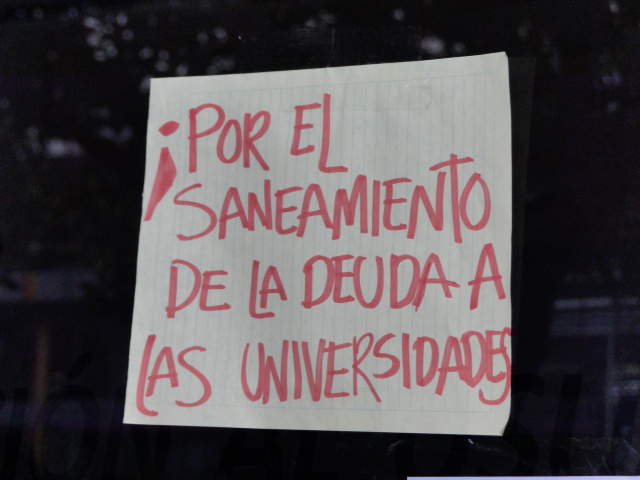 ¡POR EL
SANEAMIENTO
DE LA DEUDA A
LAS UNIVERSIDADES